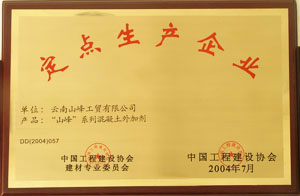 定点生产企业
单位：云南山峰工贸有限公司
产品：“山峰”系列混凝土外加剂
DD(2004)057
中国工程建设协会
建材专业委员会
中国工程建设协会
2004年7月